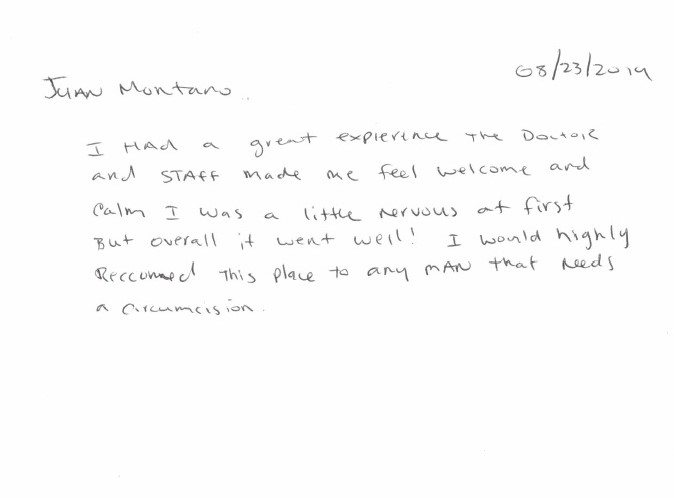 Juan Montano
08/23/2019
I Had a great expierence The Doctor
and STAFF made me feel welcome and
Calm I was a little nervous at first
But overall it went well! I would highly
Reccomned This place to any mAN that needs
a circumcision.